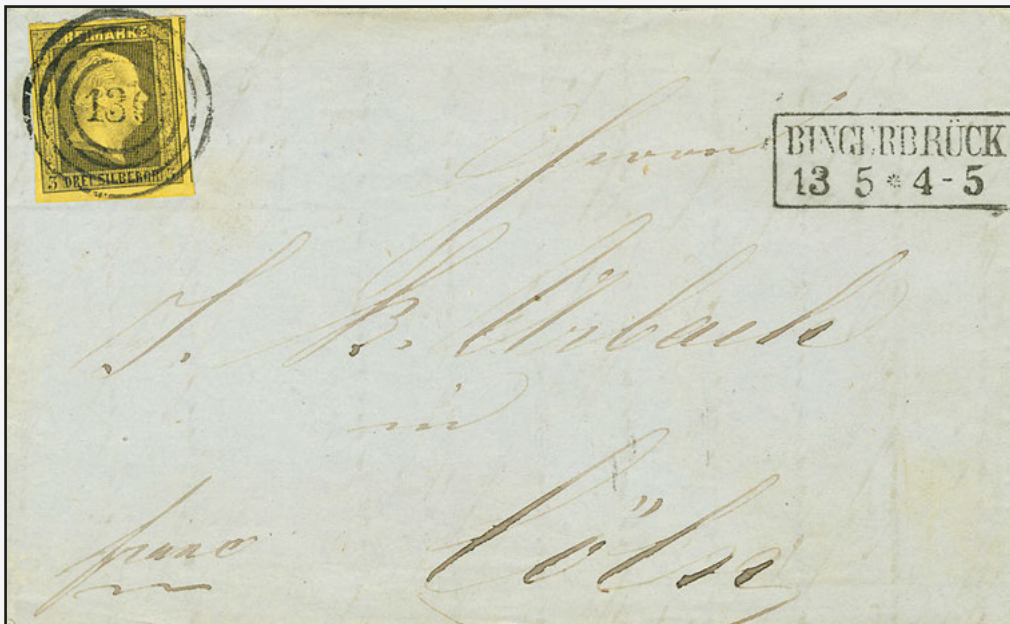 FREIMARKE
13
3 DREI SILBERGR. 3
BINGERBRÜCK
13 5 * 4-5
Herrn
J. B. Urbach
in
franco Cöln